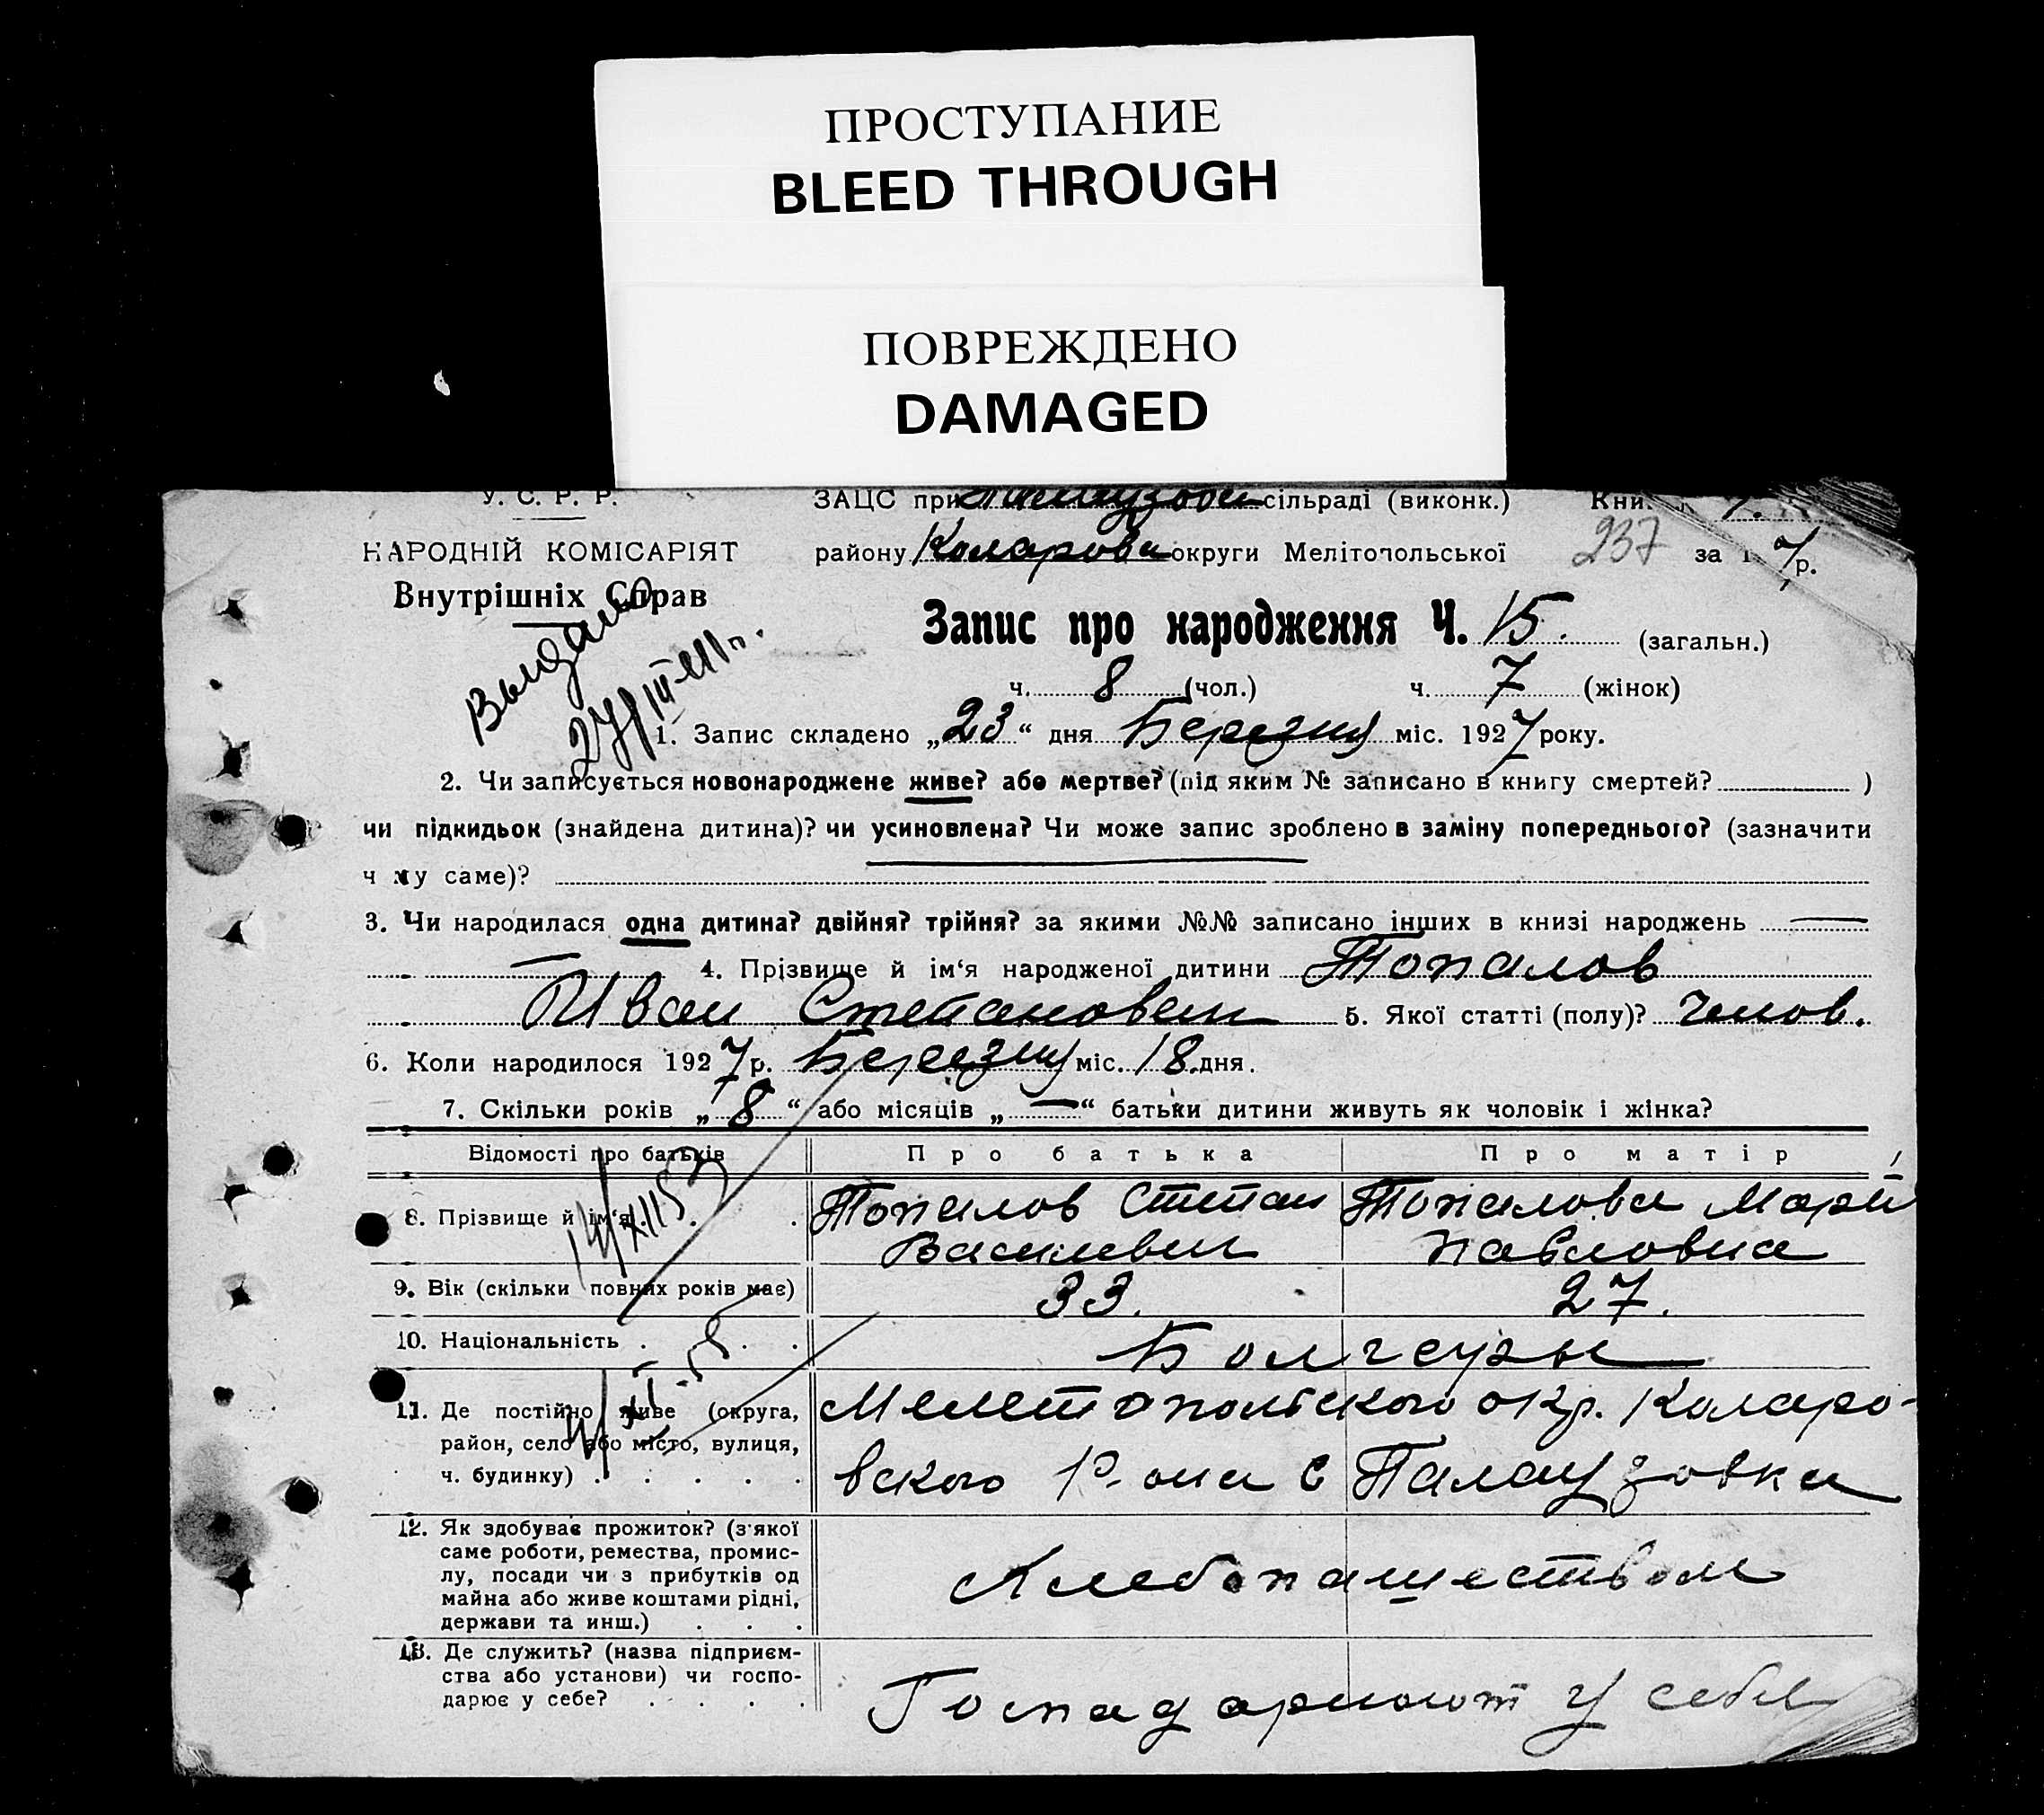 ПРОСТУПАНИЕ
BLEED THROUGH
ПОВРЕЖДЕНО
DAMAGED
У. С. Р. Р.
ЗАЦС при сільраді (виконк.) Кни.
НАРОДНІЙ КОМІСАРІЯТ
району Коларовськ округи Мелітопольської 237 за 1 7 р.
Внутрішніх Справ
Выдано
27/III
Запис про народження Ч. 15. (загальн.)
ч. 8 (чол.) ч. 7 (жінок)
1. Запис складено „23“ дня Березня міс. 1927 року.
2. Чи записується новонароджене живе? або мертве? (під яким № записано в книгу смертей? )
чи підкидьок (знайдена дитина)? чи усиновлена? Чи може запис зроблено в заміну попереднього? (зазначити
ч му саме)?
3. Чи народилася одна дитина? двійня? трійня? за якими №№ записано інших в книзі народжень —
— 4. Прізвище й ім‘я народженої дитини Топалов
Иван Степанович 5. Якої статті (полу)? Чолов.
6. Коли народилося 1927 р. Березня міс. 18 дня.
7. Скільки років „8“ або місяців „—“ батьки дитини живуть як чоловік і жінка?
Відомості про батьків Про батька Про матір
8. Прізвище й ім‘я Топалов Степан Топалова Мария
Василевич Павловна
9. Вік (скільки повних років має) 33. 27.
10. Національність Болгары
11. Де постійно живе (округа, Мелетопольского окр. Коларо-
район, село або місто, вулиця, вского Р-она с Палаузовка
ч. будинку)
12. Як здобуває прожиток? (з'якої
саме роботи, ремества, промис- Хлебопашеством
лу, посади чи з прибутків од
майна або живе коштами рідні,
держави та инш.)
13. Де служить? (назва підприєм-
ства або установи) чи госпо- Господарюют у себе
дарює у себе?